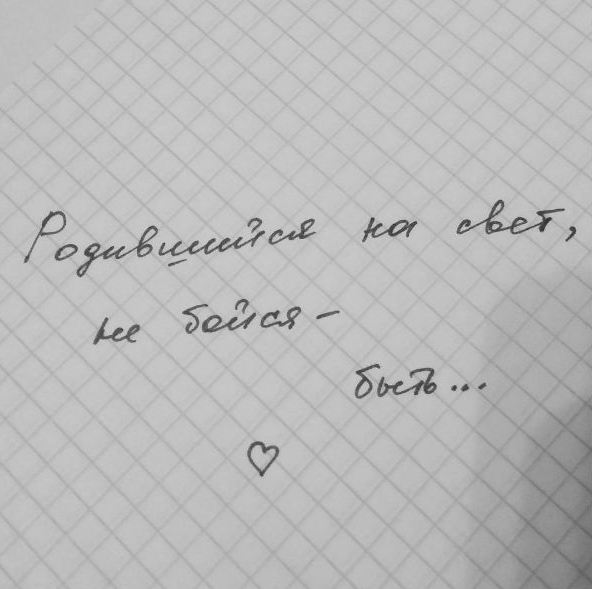 Родившийся на свет,
не бойся –
быть...
♡